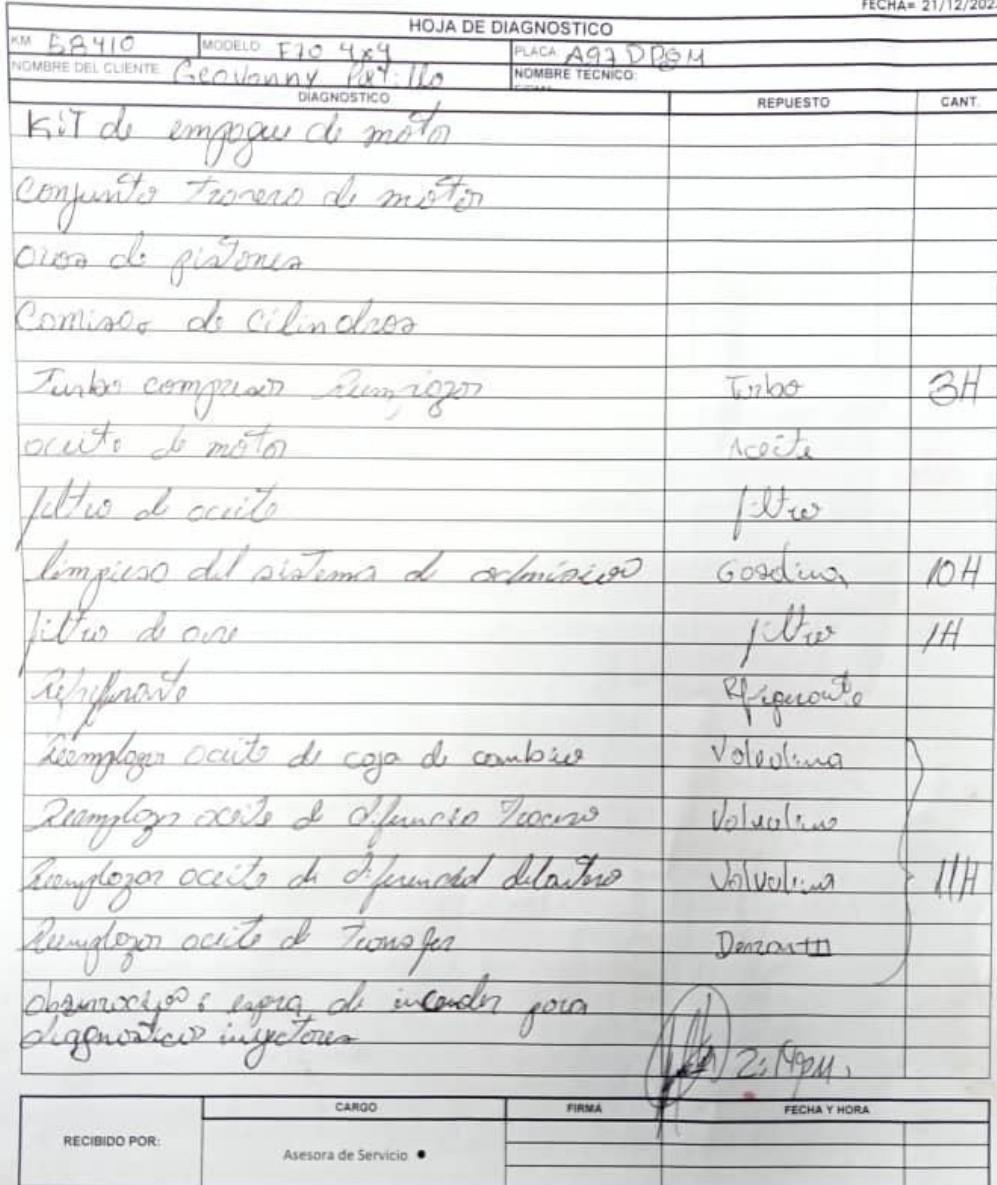 FECHA= 21/12/202
HOJA DE DIAGNOSTICO
KM 58410 MODELO F70 4x4 PLACA
NOMBRE DEL CLIENTE Geovanny NOMBRE TECNICO:
DIAGNOSTICO REPUESTO CANT.
Kit de empaque de motor
Conjunto trasero de motor
aros de pistones
Camisas de cilindros
Turbo compresor Reemplazar Turbo 3H
aceite de motor Aceite
filtro de aceite filtro
limpieza del sistema de admision Gasolina 10H
filtro de aire filtro 1H
Refrigerante Refrigerante
Reemplazar aceite de caja de cambios Valvolina
Reemplazar aceite de difrencia Trasero Valvolina
Reemplazar aceite de diferencial delantero Valvolina 11H
Reemplazar aceite de Transfer
observacion: espera de encender para
diagnostico inyectores
CARGO FIRMA FECHA Y HORA
RECIBIDO POR:
Asesora de Servicio